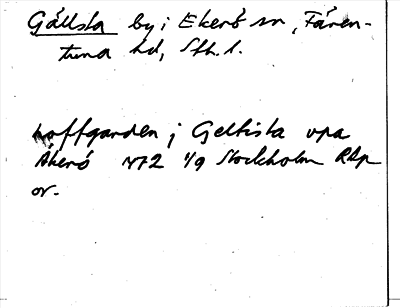 Gällsta by i Ekerö sn, Fären-
tuna hd, Sth. l.
hoffgarden j Geltista vpa
Åkerö 1472 1/9 Stockholm RAp
or.